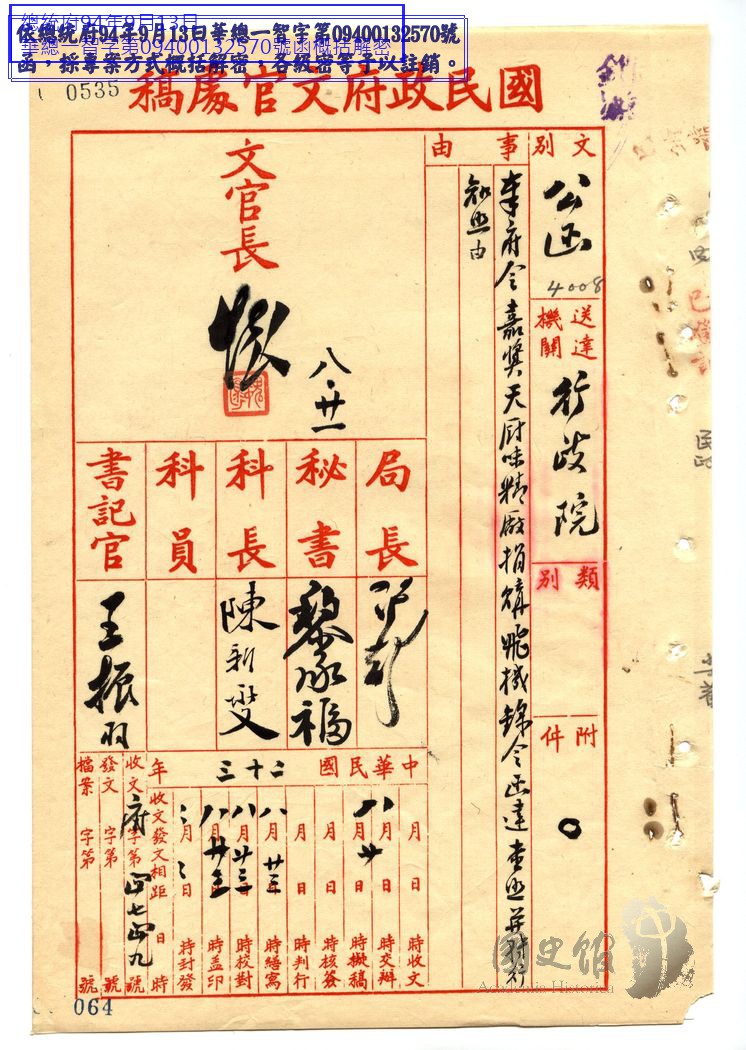 總統府94年9月13日
華總一智字第09400132570號函概括解密
依總統府94年9月13日華總一智字第09400132570號
函，採專案方式概括解密，各級密等予以註銷。
0535
國民政府文官處稿
文別
公函
4008
送達機關
行政院
類別
附件
事由
奉府令嘉奬天厨味精廠捐購飛機錄令函達查照并轉行
知照由
文官長
八、廿一
局長
秘書
黎承福
科長
陳新燮
科員
書記官
王振羽
中華民國二十三年
月日時收文
月日時交辦
八月廿日時擬稿
月日時核簽
月日時判行
八月廿三日時繕寫
八月廿三日時校對
八月廿三日時蓋印
月日時封發
收文發文相距日時
收文府字第號
發文字第號
檔案字第號
064
國史館
Academia Historica